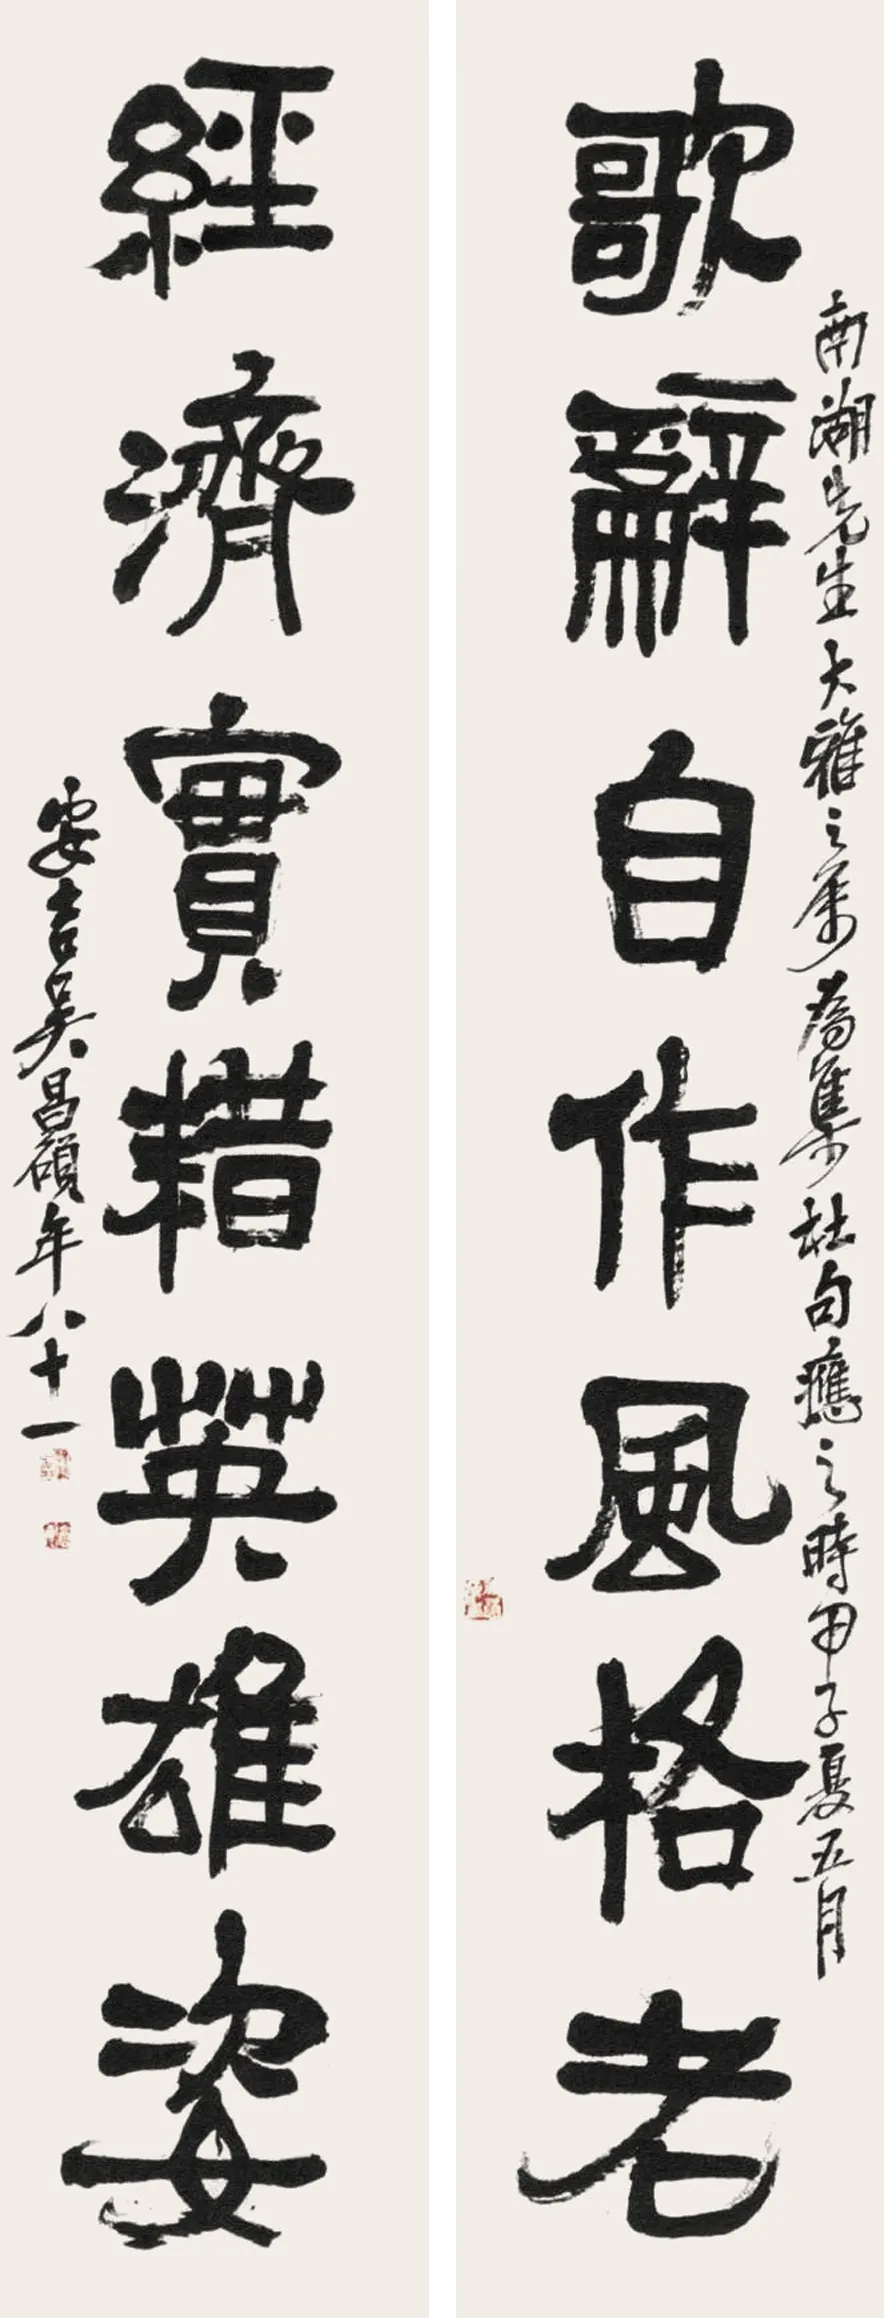 歌辭自作風格老
南湖先生大雅之屬為集杜句應之時甲子夏五月
經濟實藉英雄姿
安吉吳昌碩年八十一